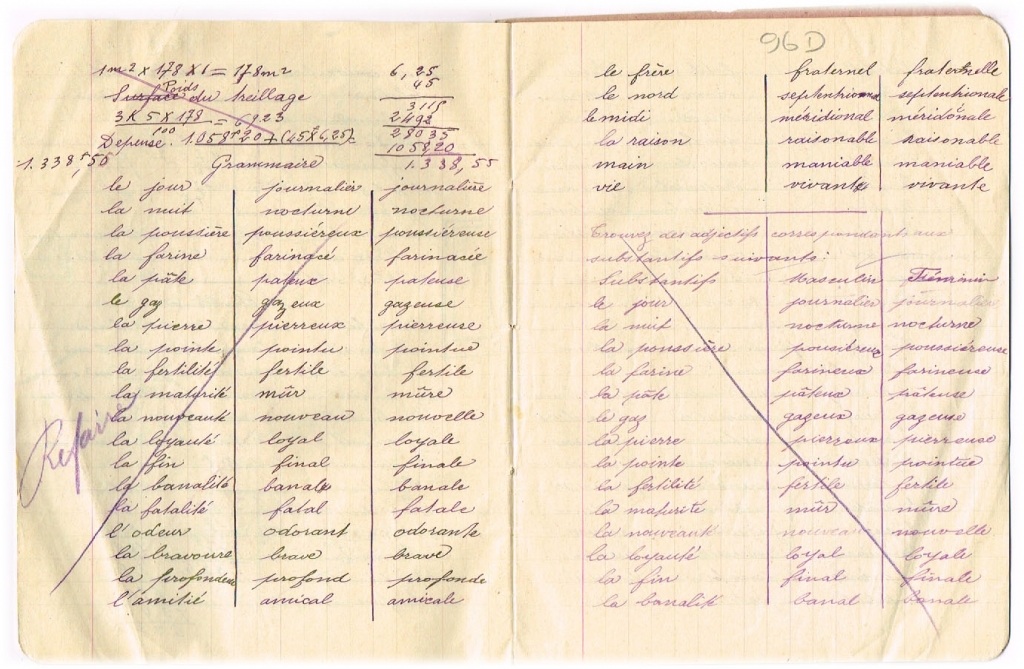 96D
1m² x 178 x 1 = 178m²
6,25
45
Surface du treillage
Poids
3118
3 x 5 x 178 = 6923
100
2492
28035
Dépense. 1.058F20 + (45F x 6,25).
105820
1.338F,50
Grammaire
1.338,55
le jour journalier journalière
la nuit nocturne nocturne
la poussière poussiéreux poussiéreuse
la farine farinacé farinacée
la pâte pateux pateuse
le gaz gazeux gazeuse
la pierre pierreux pierreuse
la pointe pointu pointue
la fertilité fertile fertile
la maturité mûr mûre
la nouveauté nouveau nouvelle
la loyauté loyal loyale
la fin final finale
la banalité banale banale
la fatalité fatal fatale
l'odeur odorant odorante
la bravoure brave brave
la profondeur profond profonde
l'amitié amical amicale
Refaire
le frère fraternel fraternelle
le nord septentrional septentrionale
le midi méridional méridonale
la raison raisonable raisonable
main maniable maniable
vie vivante vivante
Trouvez des adjectifs correspondants aux
substantifs suivants:
Substantifs Masculin Féminin
le jour journalier journalier
la nuit nocturne nocturne
la poussière pousiéreux poussiéreuse
la farine farineux farineuse
la pâte pâteux pâteuse
le gaz gazeux gazeuse
la pierre pierreux pierreuse
la pointe pointu pointue
la fertilité fertile fertile
la maturité mûr mûre
la nouveauté nouveau nouvelle
la loyauté loyal loyale
la fin final finale
la banalité banal banale